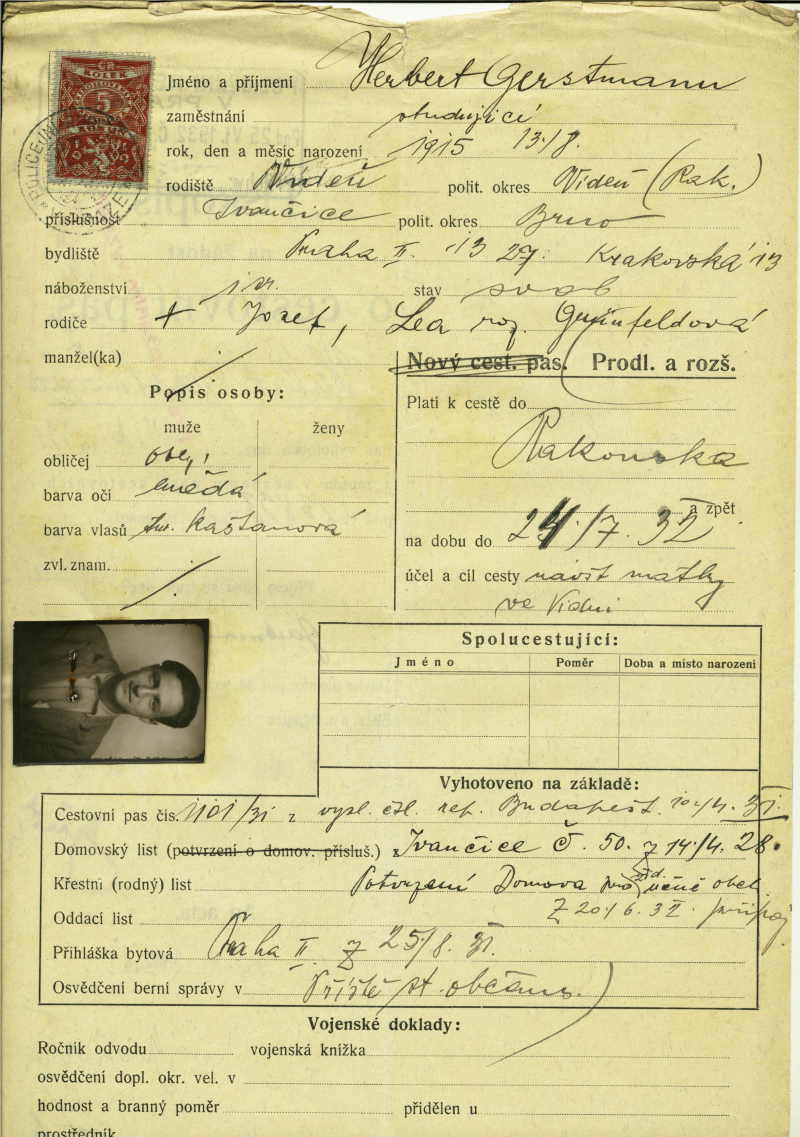 KOLEK
5
KORUN
Jméno a příjmení Herbert Gerstmann
zaměstnání studující
rok, den a měsíc narození 1915 13./8.
rodiště Vídeň polit. okres Vídeň (Rak.)
příslušnost Ivančice polit. okres Brno
bydliště Praha II. 13 27. Krakovská 13
náboženství izr. stav svob
rodiče + Jozef, Lea roz. Grünfeldová
manžel(ka) ./.
Nový cest. pas. Prodl. a rozš.
Popis osoby:
muže ženy
obličej
barva očí hnědá
barva vlasů tm. kaštanová
zvl. znam. ./.
Platí k cestě do
Rakouska
a zpět
na dobu do 24./7. 32
účel a cíl cesty návšt matky
ve Vídni
Spolucestující:
Jméno Poměr Doba a místo narození
Vyhotoveno na základě:
Cestovní pas čís. 1101/31 z vysl. čsl. rep. Budapešť. 10./4. 31.
Domovský list (potvrzení o domov. přísluš.) z Ivančice č. 50. z 14./4. 28.
Křestní (rodný) list Potvrzení Domova pro obch.
Z 20./6. 32.
Oddací list
Přihláška bytová Praha II. z 25/8. 31.
Osvědčení berní správy v Příště st. občans.
Vojenské doklady:
Ročník odvodu vojenská knížka
osvědčení dopl. okr. vel. v
hodnost a branný poměr přidělen u
prostředník